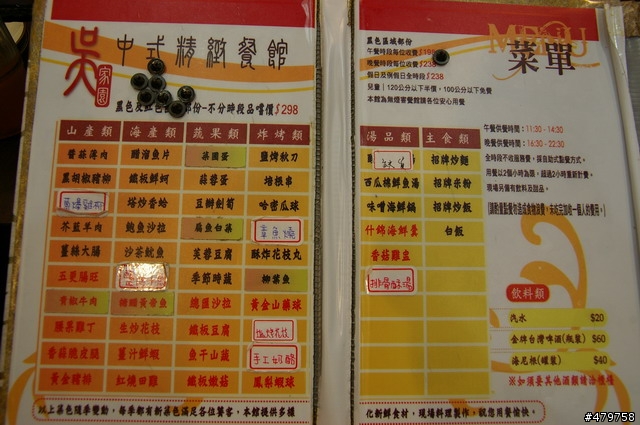 吳
家園
中式精緻餐館
黑色及紅色部份-不分時段品嚐價$298
山產類 海產類 蔬果類 炸烤類
醬蒜薄肉 醋溜魚片 菜圃蛋 鹽烤秋刀
黑胡椒豬柳 鐵板鮮蚵 蒜蓉蛋 培根串
塔炒香蛤 豆瓣劍筍 哈密瓜球
芥藍羊肉 鮑魚沙拉 扁魚白菜 章魚燒
薑絲大腸 沙茶魷魚 芙蓉豆腐 酥炸花枝丸
五更腸旺 季節時蔬 柳葉魚
青椒牛肉 糖醋黃帝魚 總匯沙拉 黃金山藥球
腰果雞丁 生炒花枝 鐵板豆腐 塩烤花枝
香蒜脆皮腸 薑汁鮮蝦 魚干山蘇 手工奶酪
黃金豬柳 紅燒田雞 鐵板嫩菇 鳳梨蝦球
以上菜色隨季變動，每季都有新菜色滿足各位饕客，本館提供多樣
MENU
菜單
黑色區域部份
午餐時段每位收費$168
晚餐時段每位收費$238
假日及例假日全時段$238
兒童｜120公分以下半價，100公分以下免費
本館為無煙害餐館請各位安心用餐
湯品類 主食類
招牌炒麵
西瓜綿鮮魚湯 招牌米粉
味噌海鮮鍋 招牌炒飯
什錦海鮮羹 白飯
香菇雞盅
排骨酥湯
午餐供餐時間：11:30 - 14:30
晚餐供餐時間：16:30 - 22:30
全時段不收服務費，採自助式點餐方式。
用餐以2個小時為限，超過2小時重新計費。
現場另備有飲料及甜品。
飲料類
汽水 $20
金牌台灣啤酒(瓶裝) $60
海尼根(罐裝) $40
※如須要其他酒類請洽櫃檯
化新鮮食材，現場料理製作，祝您用餐愉快。
#479758